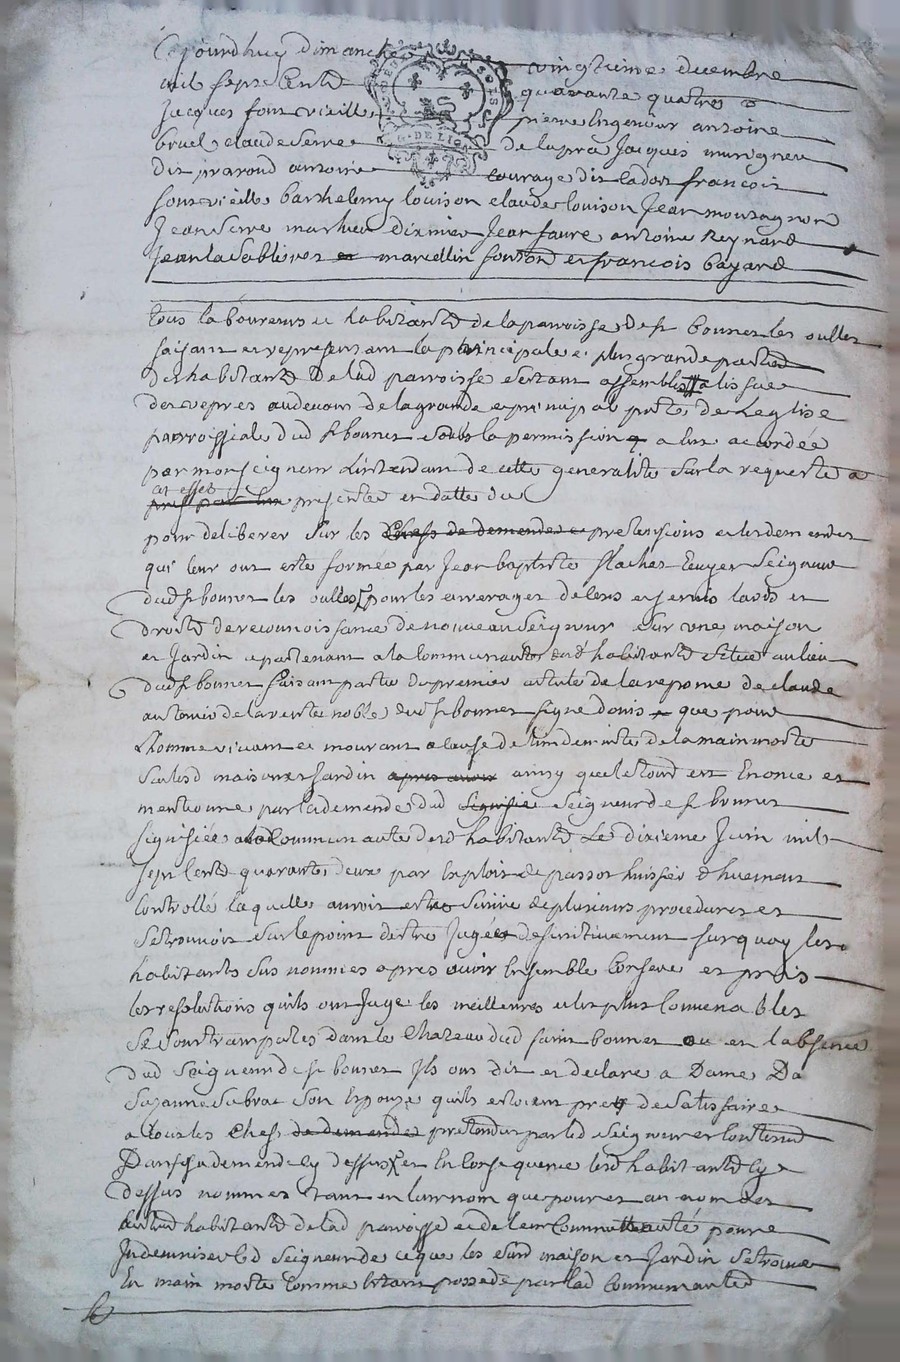 Cejourdhuy dimanche vingtieme decembre
mil sept cents quarante quatre
Jacques fontvieille pierre Ingenieur antoine
bruel claude Serre de lapra Jacques murigneu
dit praroud antoine courage dit lados francois
fontvieille barthelemy louison claude louison Jean montagnon
Jean Serre mathieu dixmier Jean faure antoine Reynard
Jean la Sabliere marcellin et francois bayard
tous laboureurs et habitants de la parroisse de st bonnet les oulles
faisant et representant la principale et plus grande partie
des habitants de lad parroisse estant assemblés a lissue
des vepres audevant de la grande et principal porte de Leglise
parroissiale dud st bonnet sous la permission a lux accordée
par monseigneur Lintendant de cette generalité sur la requeste a
cet effet presentée en datte du
pour deliberer sur les chefs de demandes et pretensions et les demandes
qui leur ont esté formées par Jean baptiste flachat Ecuyer Seigneur
dud st bonnet les oulles pour les arrerages de cens et servis lavds et
droits de reconnoissance de nouveau Seigneur Sur une maison
et Jardin apartenant a la Communauté desd habitants situé au lieu
dud st bonnet faisant partie du premier article de la reponse de claude
antoine de la rente noble dud st bonnet signé donis que pour
Lhomme vivant et mourant a cause de lindemnité de la main morte
Sur lesd maison et Jardin apres avoir ainsy que le tout est Enoncé et
mentionné par la demande dud Seigneur de st bonnet
signifiée a lad Communauté desd habitants Le dixieme Juin mil
sept cents quarante deux par Exploit de passot huissier dhuement
Controllé laquelle auroit esté Suivie de plusieurs procedures et
Se trouvoit sur le point destre Jugée definitivement surquoy les
habitants sus nommés apres avoir Ensemble Conferé et pris
les resolutions quils ont Jugé les meilleures et les plus Convenables
Se sont transportés dans le Chateau dud saint bonnet ou en labsence
dud Seigneur de st bonnet Ils ont dit et declaré a Dame Da
Suzanne Son Epouze quils estoient prest de Satisfaire
a tous les Chefs de demandes pretendus par led Seigneur et Contenus
Dans sa demande cy dessus et En Consequence lesd habitants cy
dessus nommés tant en leur nom que pour et au nom des
autres habitants de lad parroisse et de leur Communauté pour
Indemniser led Seigneur de ce que les susd maison et Jardin Se trouve
En main morte Comme Estant possedé par lad Communauté